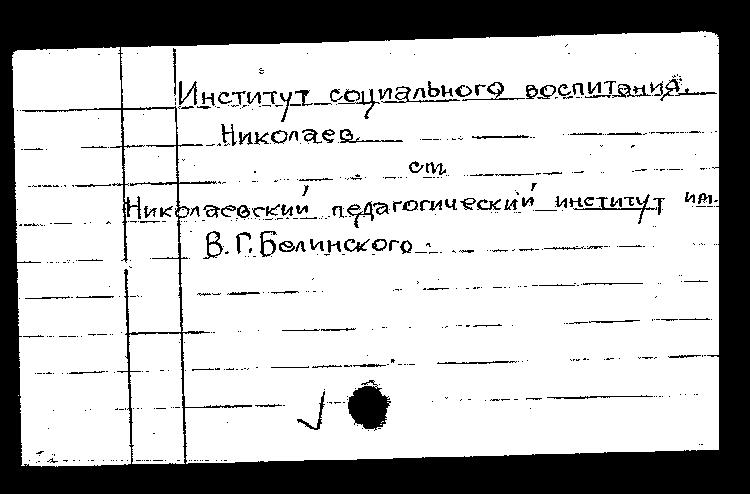 Институт социального воспитания.
Николаев
см.
Николаевский педагогический институт им.
В. Г. Белинского.